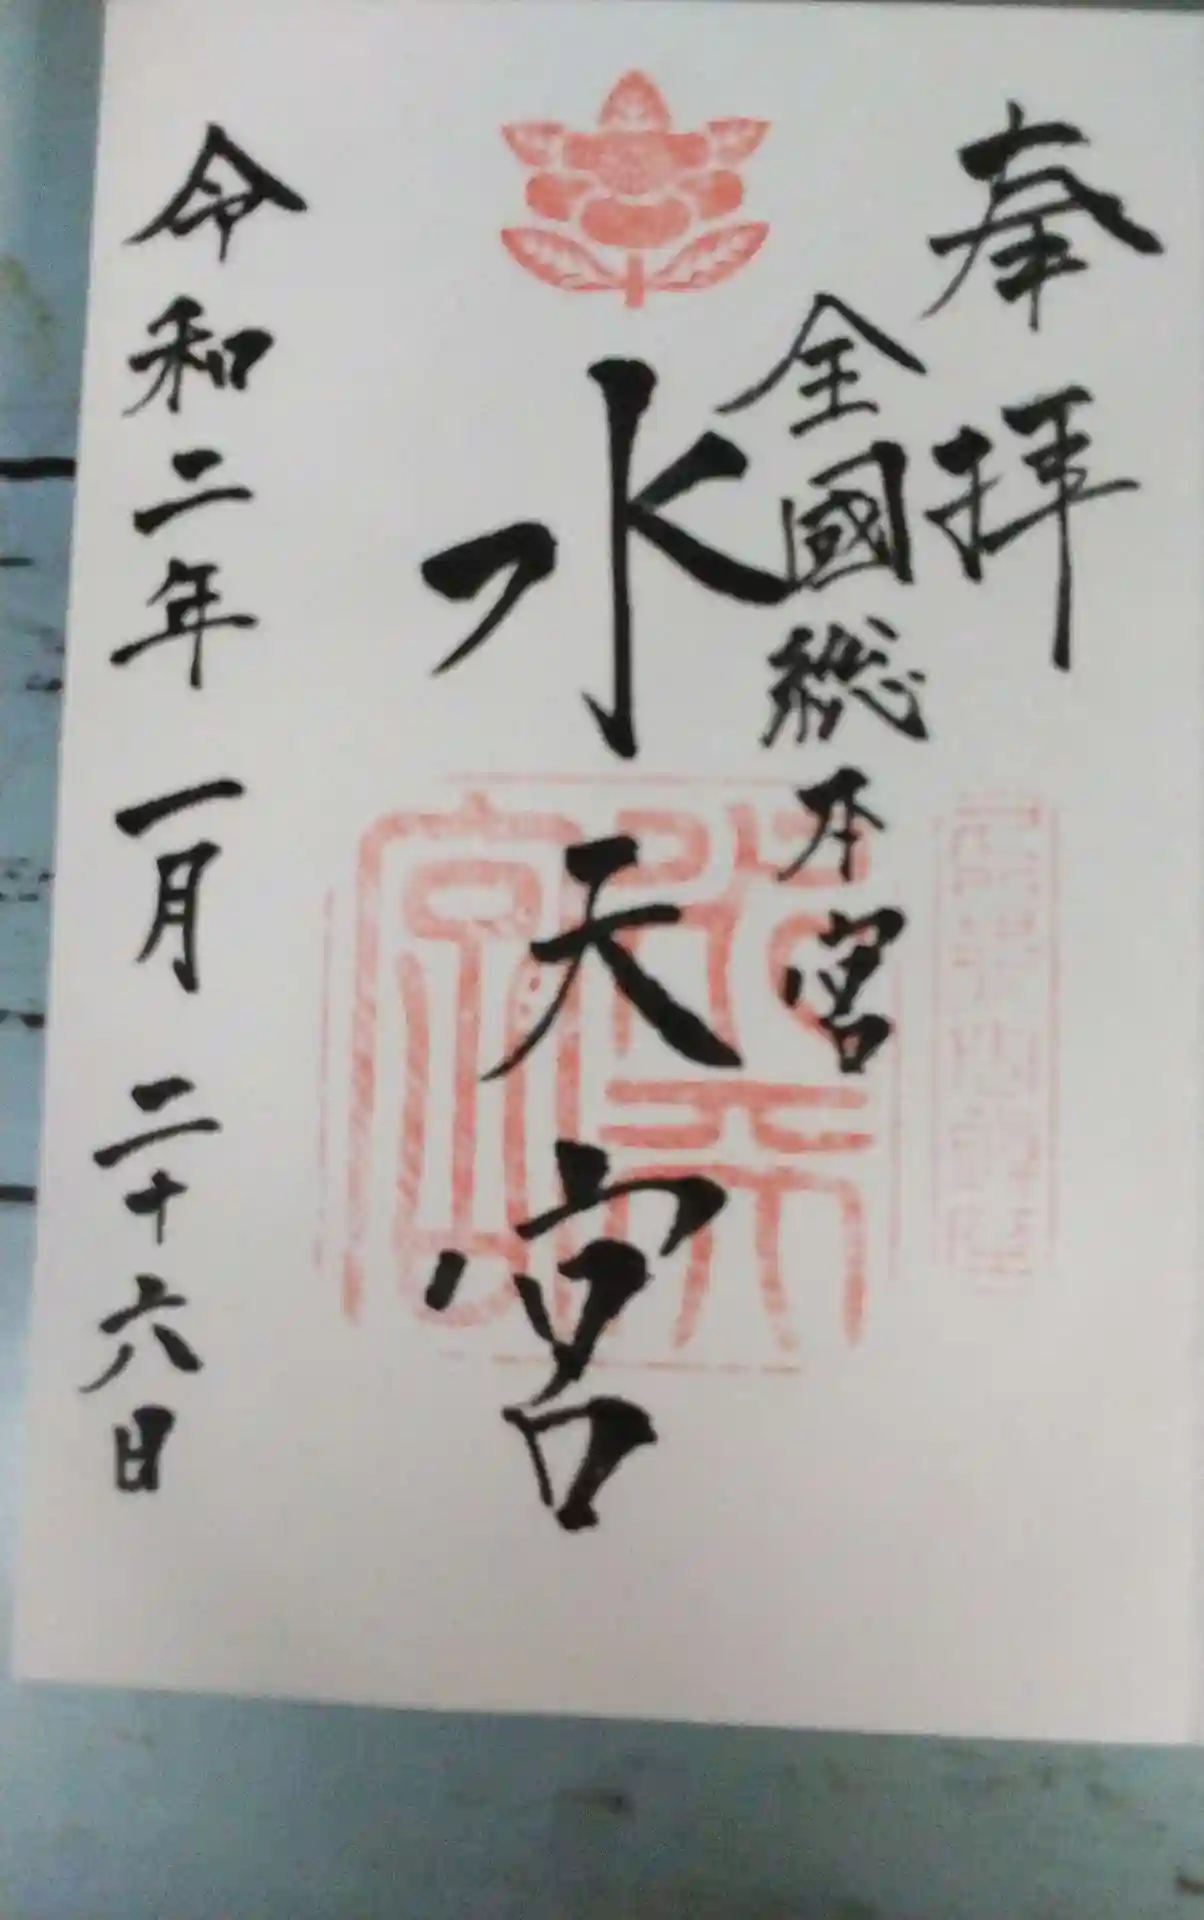 奉拝
全國総本宮
水天宮
令和二年一月二十六日